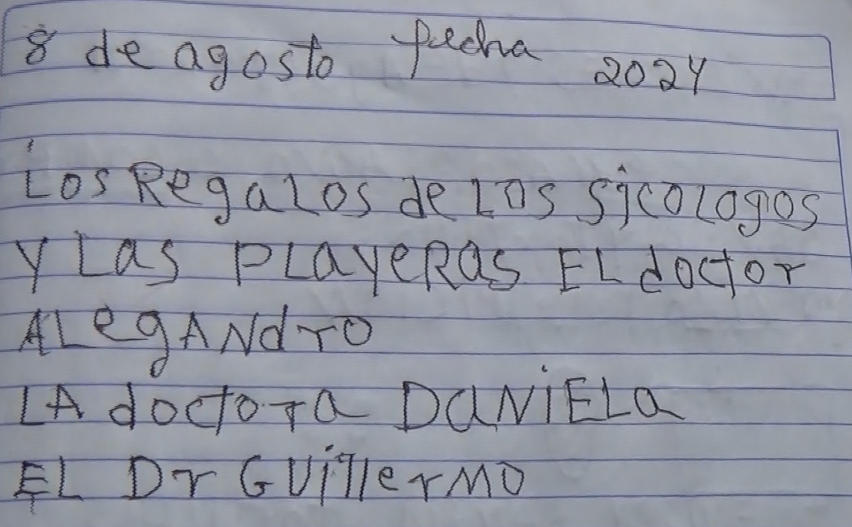 8 de agosto fecha 2024
Los Regalos de Los sicologos
y Las PLayeRas EL doctor
ALegANdro
LA doctora DaNiELa
EL Dr GuillerMO